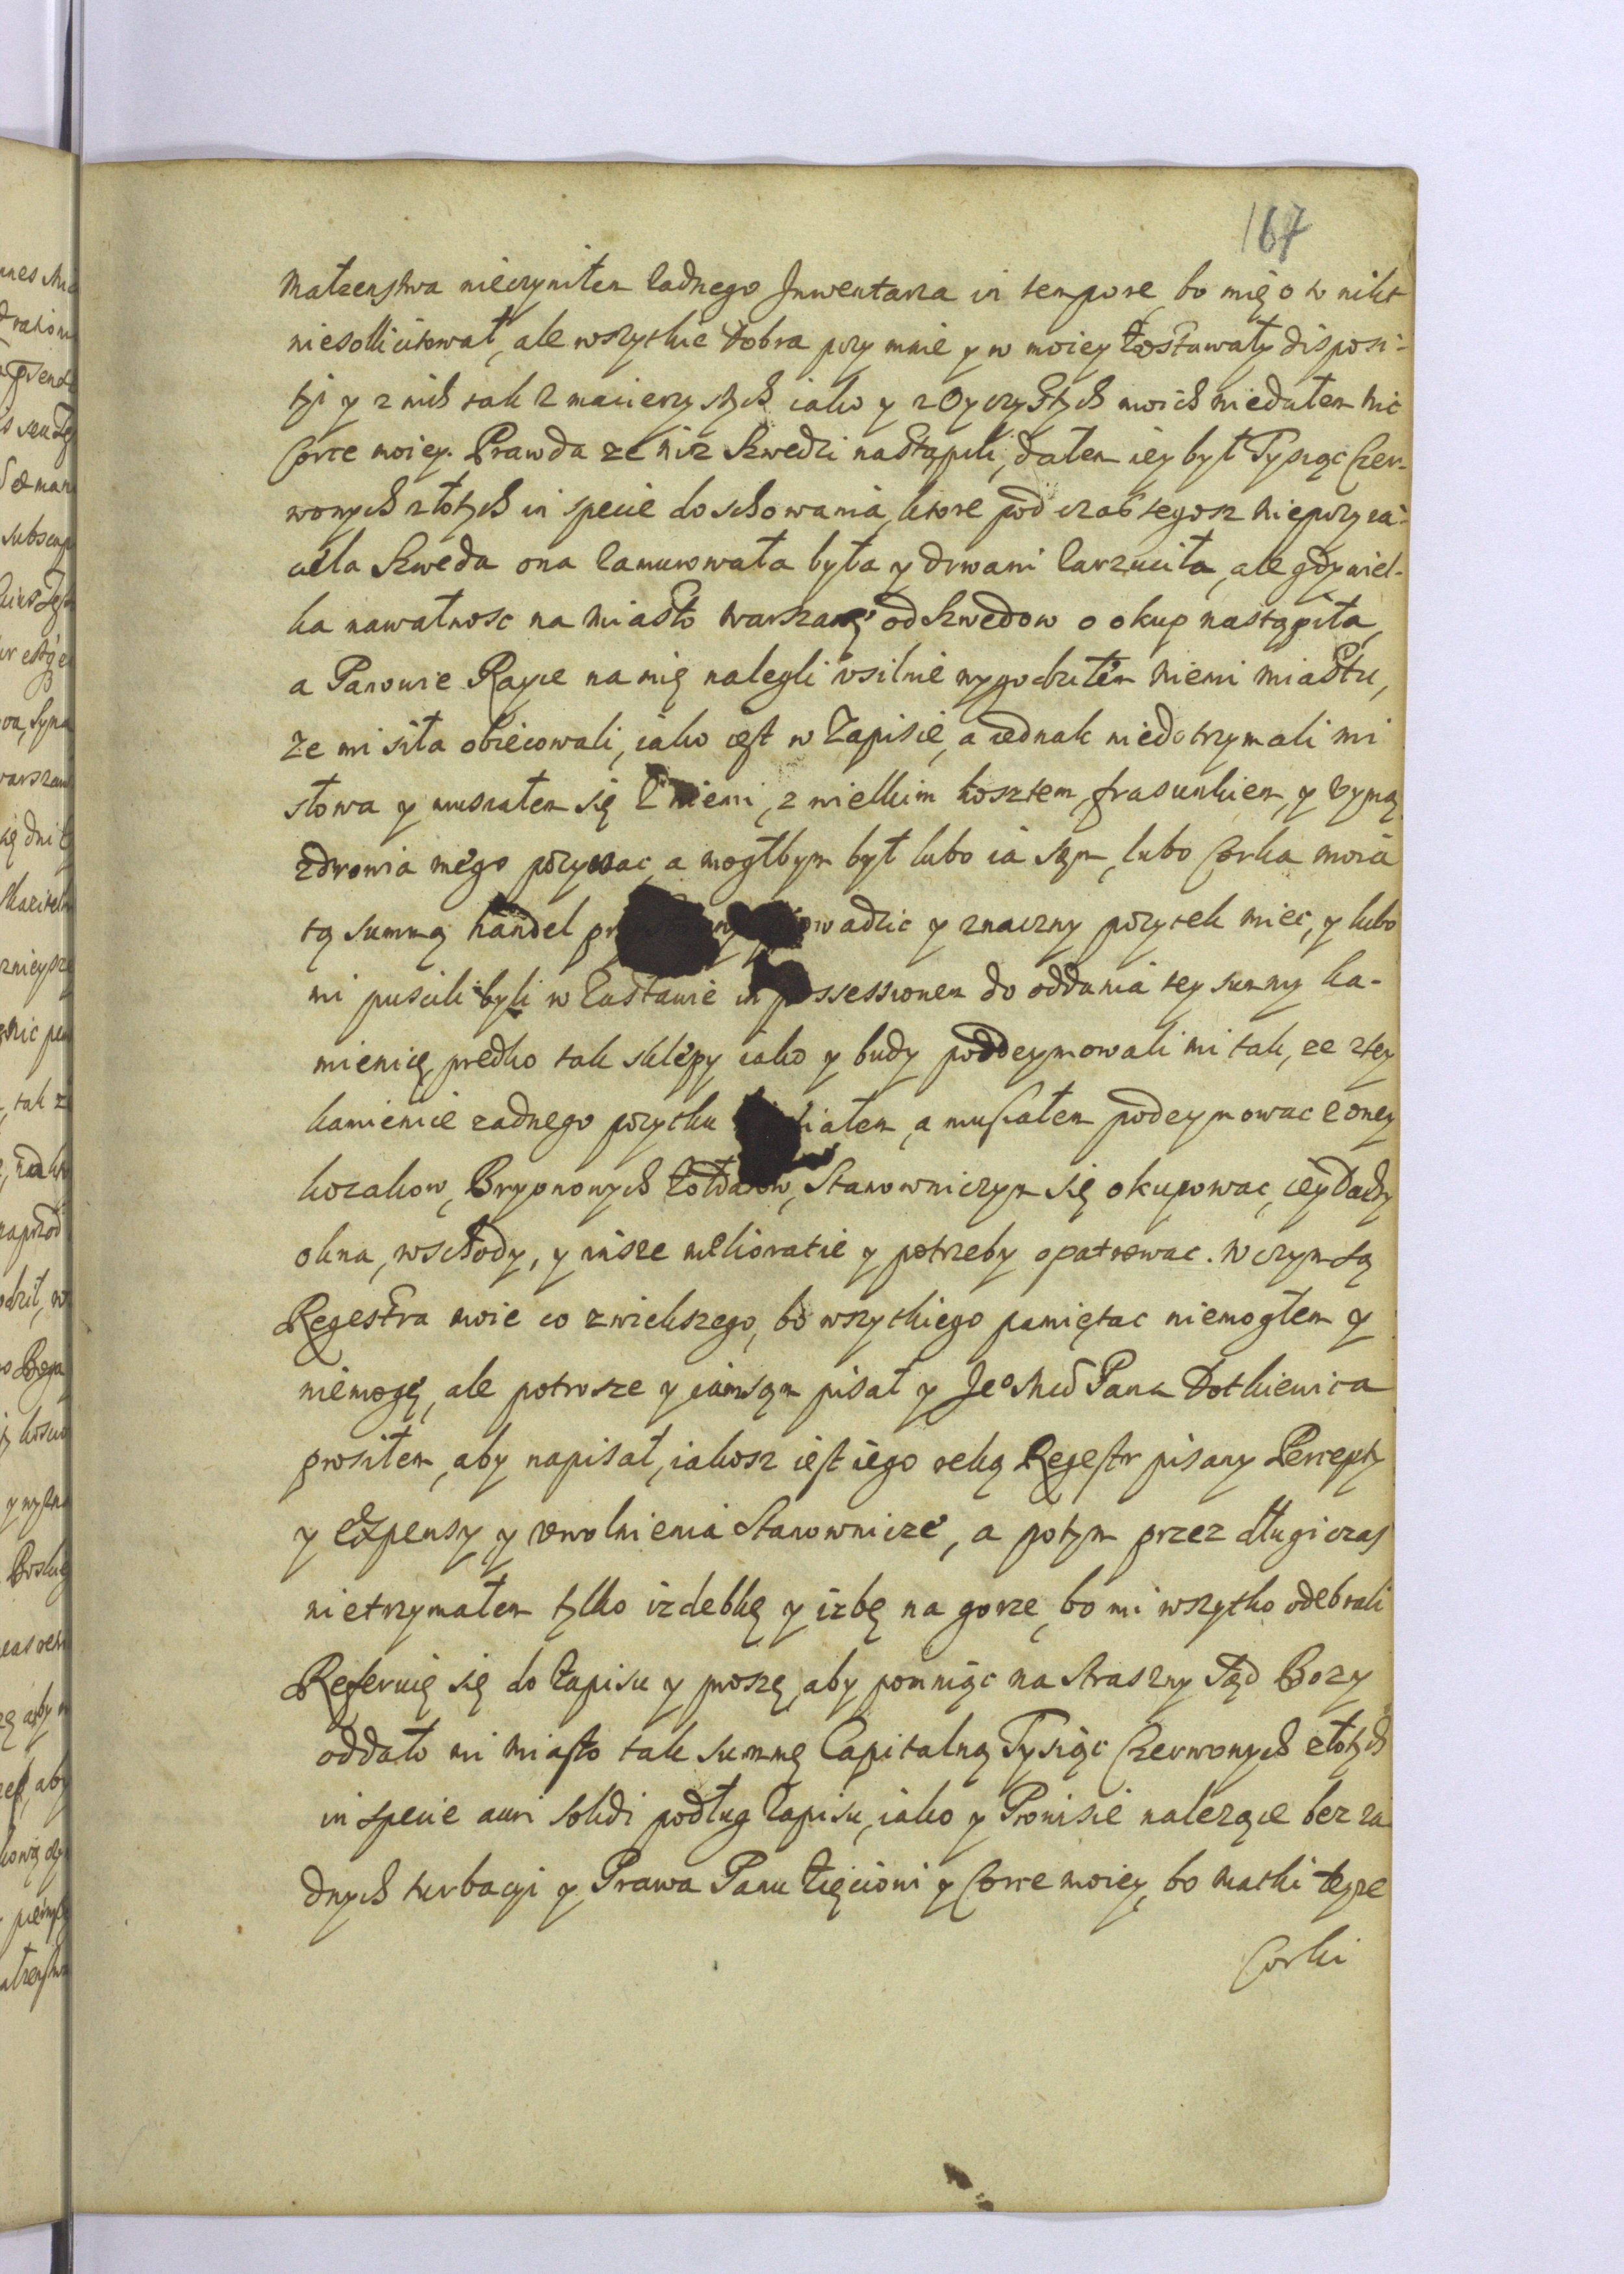 167
Małzenstwa nieczyniłem żadnego Inwentarza in tempore, bo mię o to nikt
niesollicitował, ale wszytkie Dobra przy mnie y w moiey zostawały disposi-
tji y z nich tak z macierzystych iako y z Oyczystych moich niedałem nic
Corce moiey. Prawda ze niz Szwedzi nastąpili, dałem iey był Tysiąc Czer-
wonych złotych in specie do schowania, ktore pod czas tegosz nieprzyia-
ciela Szweda ona zamurowała była y drwami zarzuciła, ale gdy wiel-
ka nawałnosc na Miasto Warszawę od Szwedow o okup nastąpiła,
a Panowie Rayce na mię nalegli vsilnie wygodziłem niemi Miastu,
ze mi siła obiecowali, iako iest w Zapisie, a iednak niedotrzymali mi
słowa y musiałem się z niemi, z wielkim kosztem, frasunkiem, y vymą
zdrowia mego a mogłbym był lubo ia sam, lubo Corka moia
tą summą handel y znaczny pozytek miec, y lubo
mi puscili byli w Zastawie in possessionem do oddania tey summy ka-
mienicę, prędko tak sklepy iako y budy poddeymowali mi tak, ze z tey
kamienice zadnego pozytku a musiałem podeymowac z oney
kozakow, Bryonowych Zołdatow, Stanowniczym się okupowac, iey Dachy
okna, wschody, y insze melioratie y potrzeby opatrowac. W czym są
Regestra moie co zwiekszego, bo wszytkiego pamiętac niemogłem y
niemogę, ale potrosze y iam sam pisał y Je° Mcd Pana Dotkiewica
prosiłem, aby napisał, iakosz iest iego ręką Regestr pisany Percepty
y Expensy y vwolnienia Stanownicze, a potym przez długi czas
nietrzymałem tylko izdebkę y izbę na gorze, bo mi wszytko odebrali
Referuię się do Zapisu y proszę, aby pomniąc na straszny sąd Bozy
oddało mi Miasto tak summę Capitalną Tysiąc Czerwonych złotych
in specie auri solidi podług Zapisu, iako y Prowisie nalezące bez za
dnych turbacyi y Prawa Panu Zięciowi y Corce moiey, bo Matki teyze
Corki